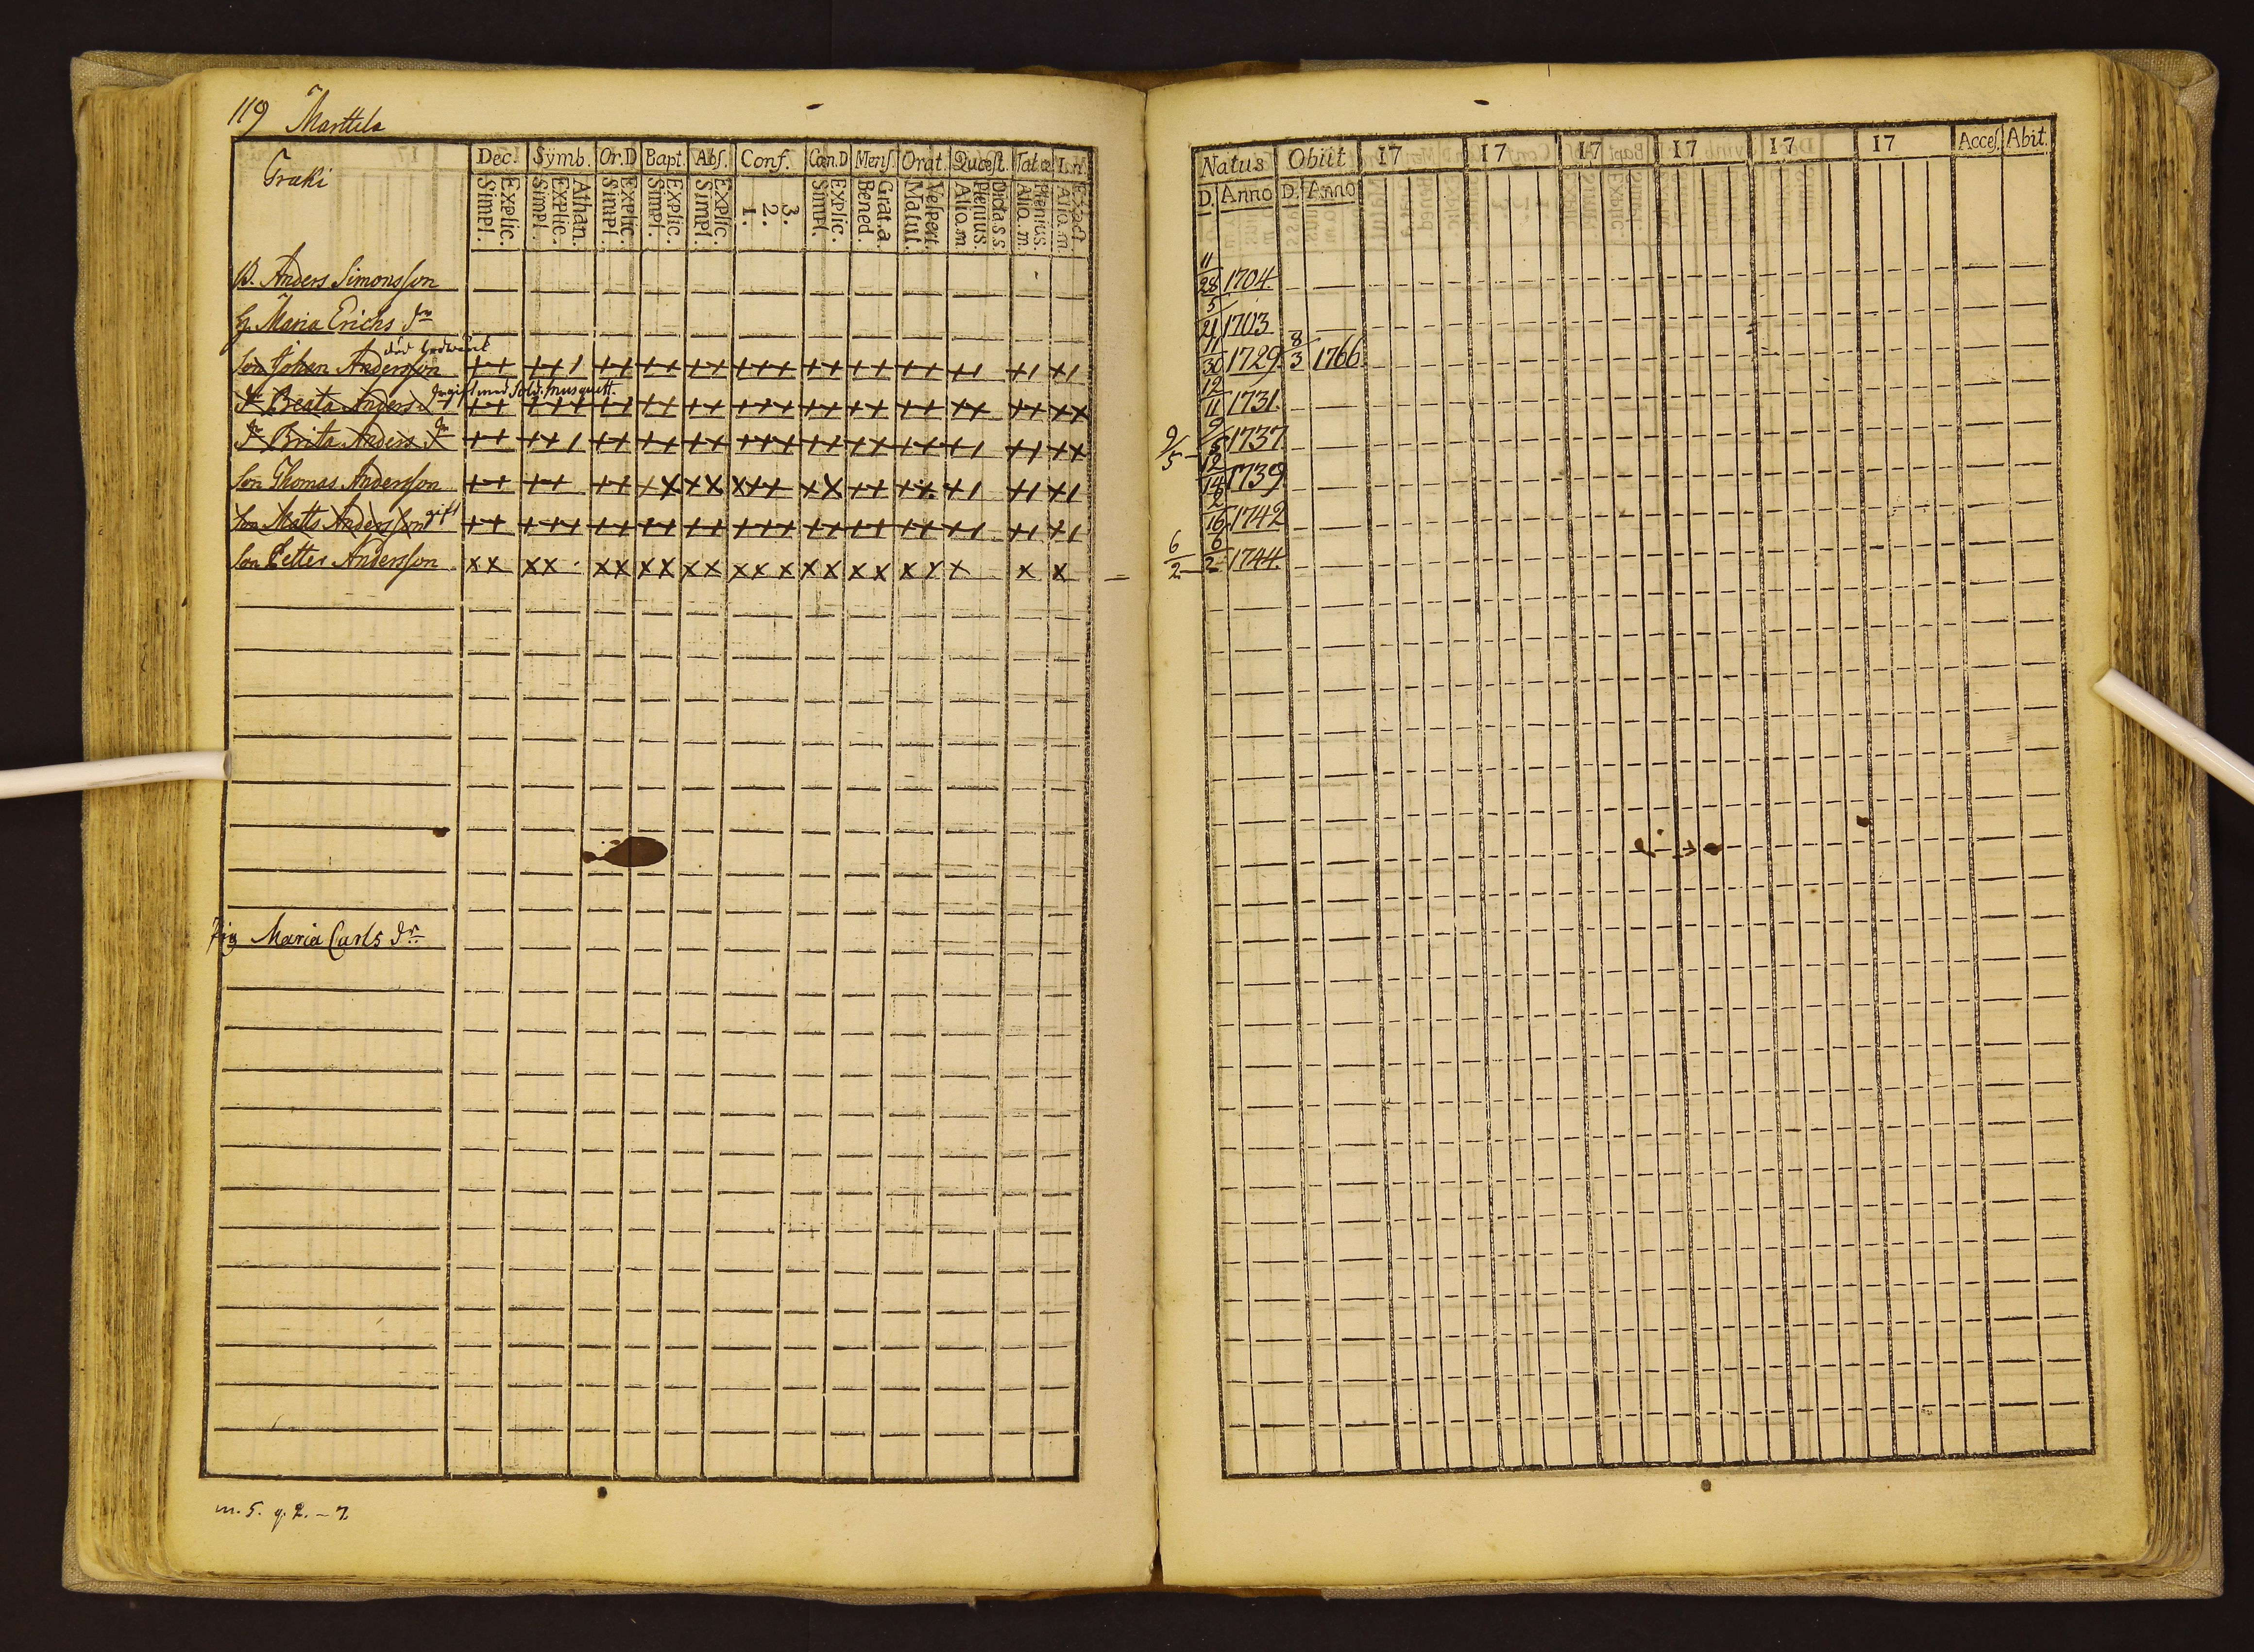 119 Marttila
Traki
Dec. Symb. Or.D Bapt. Abs. Conf. Cœn.D Mens. Orat. Quæst. Tat.œ L.n.
Simpl. Explic. Simpl. Explic. Athan. Simpl. Explic. Simpl. Explic. Simpl. Explic. 1. 2. 3. Simpl. Explic. Bened. Grat.a. Matut. Vespert. Alio.m. Plenius. Dicta s.s. Alio.m. Plenius. Alio.m. Exact.
B. Anders Simonsson
H. Maria Erichs dr
död
Son Johan Andersson
gift med Sold: Musquett.
dr Beata Anders dr
dr Brita Anders dr
Son Thomas Andersson
Son Matts Andersson gift
Son Petter Andersson
Pig Maria Carls dr
m. 5. q. 2. – 7.
Natus Obiit 17 17 17 17 17 17 Acces. Abit.
D. Anno D. Anno
11/28 1704.
5/21 1703
11/30 1729. 8/3 1766.
12/11 1731.
9/5 – 9/5 1737
12/14 1739
2/16 1742
6/2 – 6/2 1744.